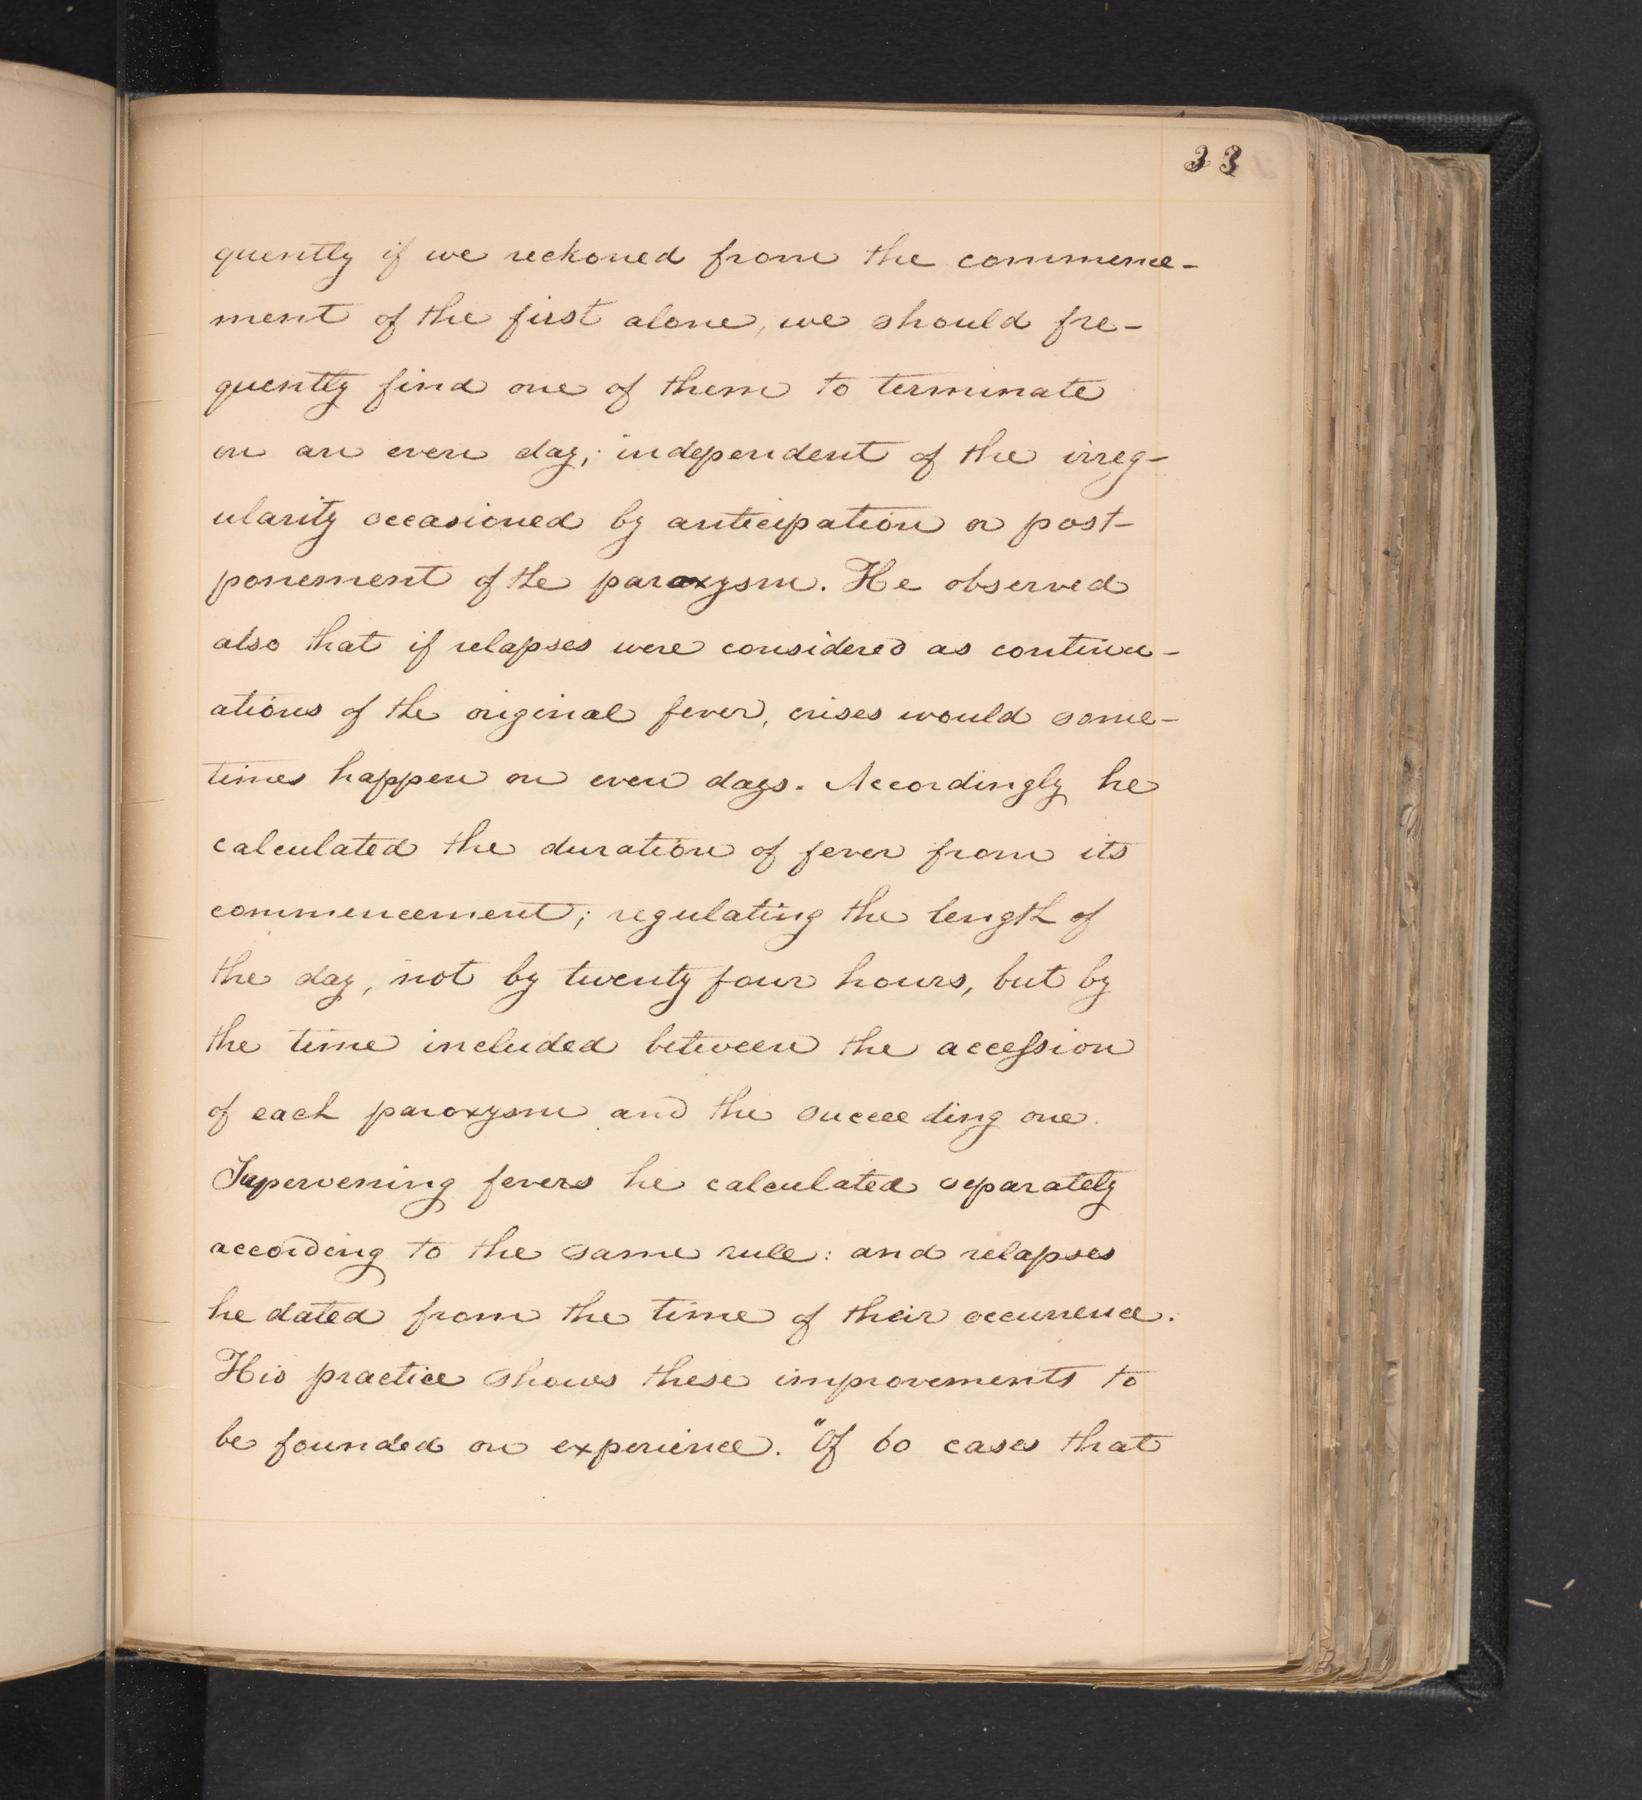 33
quently if we reckoned from the commence-
ment of the first alone, we should fre-
quently find one of them to terminate
on an even day; independent of the irreg-
ularity occasioned by anticipation or post-
ponement of the paroxysm. He observed
also that if relapses were considered as continu-
ations of the original fever, crises would some-
times happen on even days. Accordingly he
calculated the duration of fever from its
commencement; regulating the length of
the day, not by twenty four hours, but by
the time included between the accession
of each paroxysm and the succeeding one.
Supervening fevers he calculated separately
according to the same rule: and relapses
he dated from the time of their occurrence.
His practice shows these improvements to
be founded on experience. "Of 60 cases that